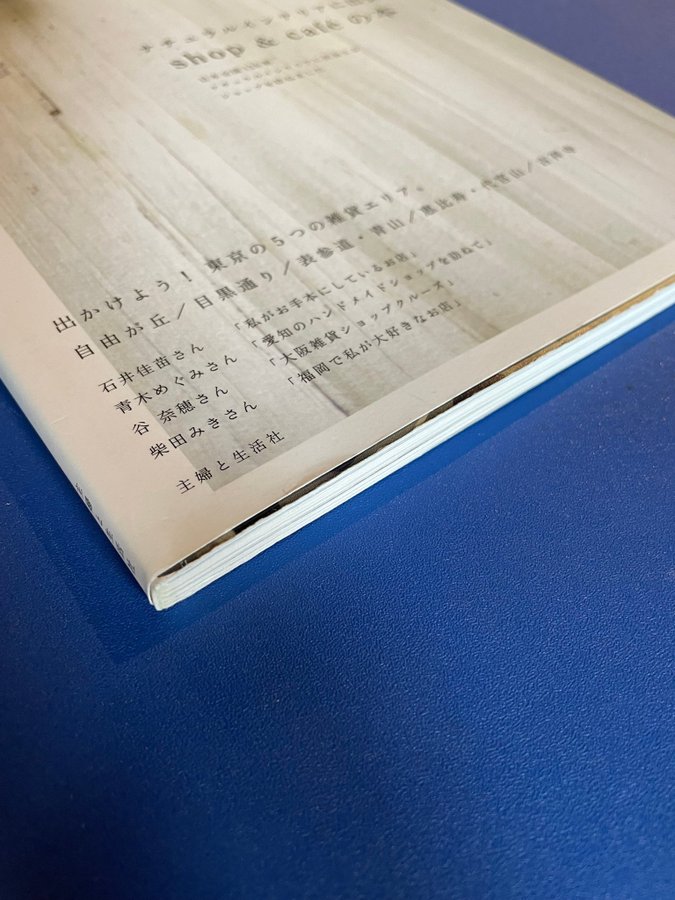 ナチュラルインテリアに出
shop & café の本
出かけよう！ 東京の5つの雑貨エリア。
自由が丘／目黒通り／表参道・青山／恵比寿・代官山／吉祥寺
石井佳苗さん 「私がお手本にしているお店」
青木めぐみさん 「愛知のハンドメイドショップを訪ねて」
谷 奈穂さん 「大阪雑貨ショップクルーズ」
柴田みきさん 「福岡で私が大好きなお店」
主婦と生活社